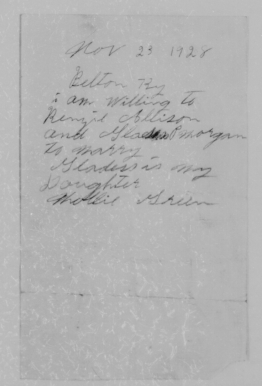 Nov 23 1928
Belton Ky
i am willing to
Renzie Ellison
and Morgan
to marry
Gladess is my
Daughter
Mollie Green